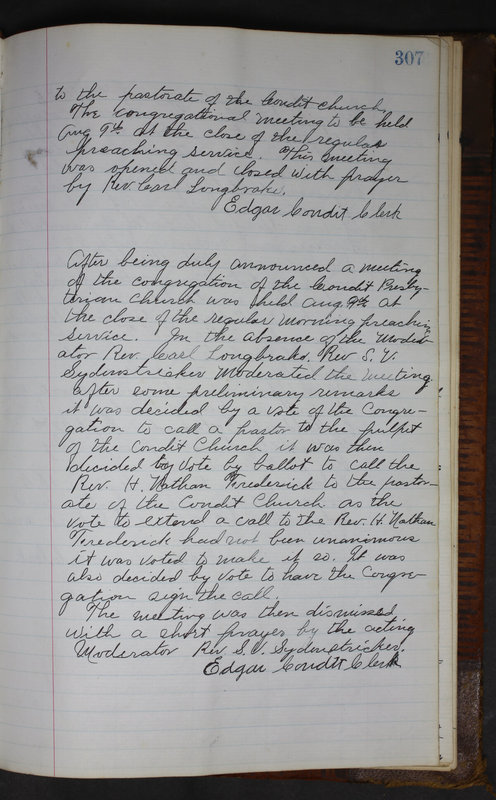 307
to the pastorate of the Condit church.
The congregational meeting to be held
Aug 9th at the close of the regular
preaching service. This meeting
was opened and closed with prayer
by Rev. Carl Longbrake.
Edgar Condit Clerk
After being duly announced a meeting
of the congregation of the Condit Presby-
terian Church was held Aug. 9th at
the close of the regular morning preaching
service. In the absence of the Moder-
ator Rev. Carl Longbrake, Rev S. V.
Sydenstricker Moderated the meeting.
After some preliminary remarks
it was decided by a vote of the Congre-
gation to call a pastor to the pulpit
of the Condit Church it was then
decided by vote by ballot to call the
Rev. H. Nathan Frederick to the pastor-
ate of the Condit Church as the
vote to extend a call to the Rev. H. Nathan
Frederick had not been unanimous
it was voted to make it so. It was
also decided by vote to have the Congre-
gation sign the call.
The meeting was then dismissed
with a short prayer by the acting
Moderator Rev S.V. Sydenstricker.
Edgar Condit Clerk